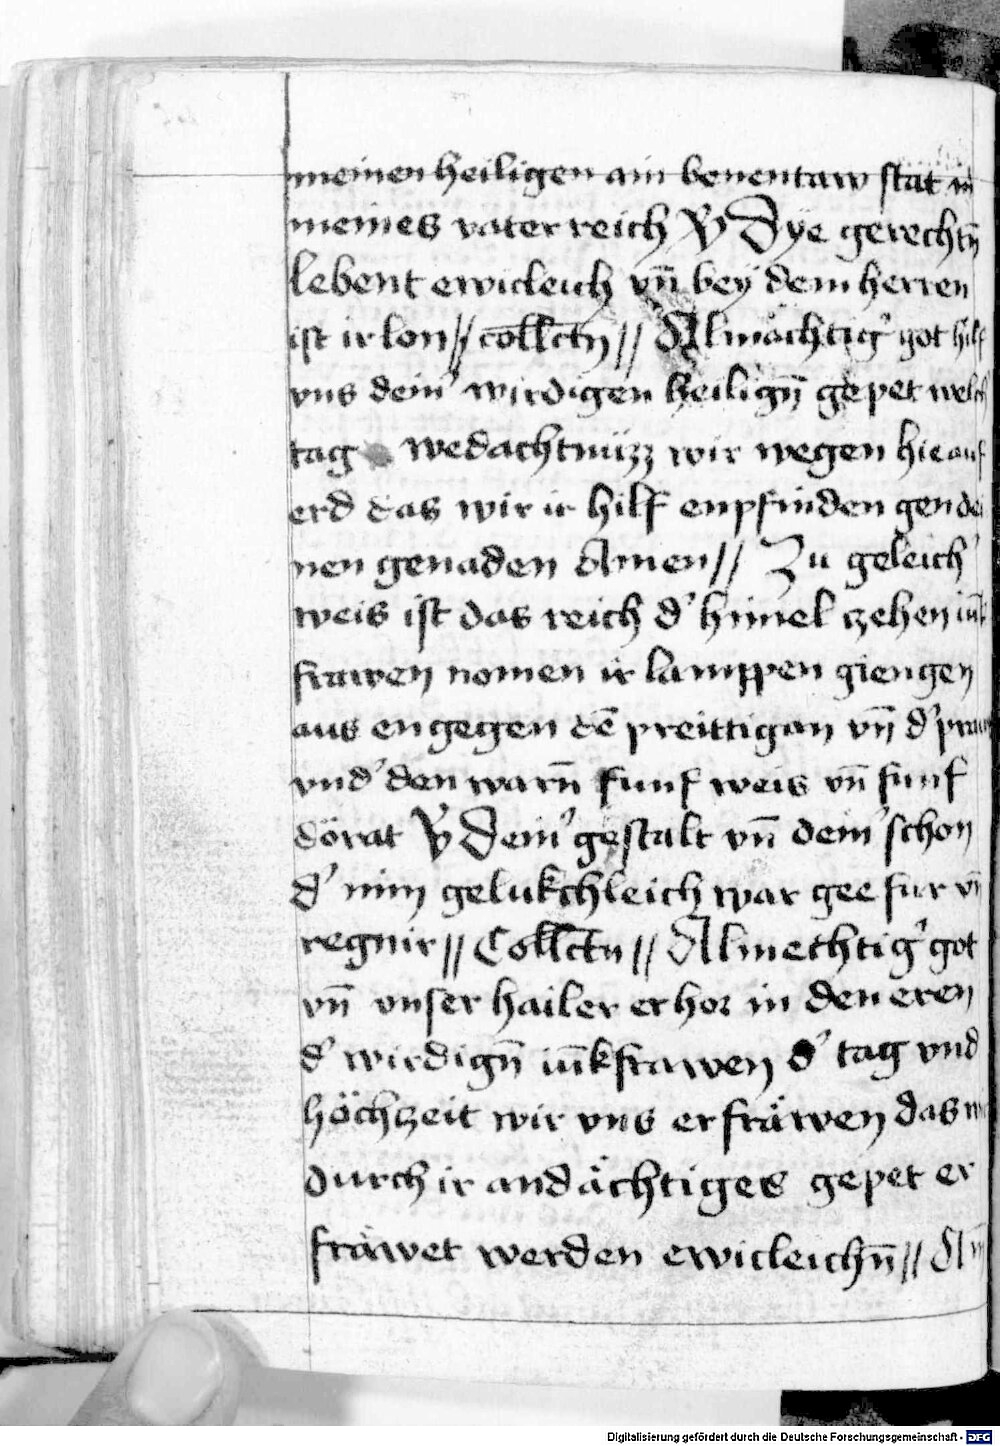 meinen heiligen ain benentaw stat in
meines vater reich V Dye gerechtn̄
lebent ewicleich vn̄ bey dem herren
ist ir lon // collectn // Almächtig' got hilf
vns dein' wirdigen heilign̄ gepet welch
tag wedachtnüzz wir wegen hie auf
erd das wir ir hilf enpfinden gen dei
nen genaden Amen // Zu geleich'
weis ist das reich d' himel zehen iūk
frawen nomen ir lamppen giengen
aus engegen dē preittigan vn̄ d' praut
vnd' den warn̄ funf weis vn̄ funf
dörat V Dein' gestalt vn̄ dein' schon
d' nim gelukchleich war gee fur vn̄
regnir // Collectn // Almechtig' got
vn̄ vnser hailer erhor in den eren
d' wirdign̄ iūkfrawen d' tag vnd
höchzeit wir vns erfräwen das wir
durch ir andächtiges gepet er
fräwet werden ewicleichn̄ //
Digitalisierung gefördert durch die Deutsche Forschungsgemeinschaft - DFG